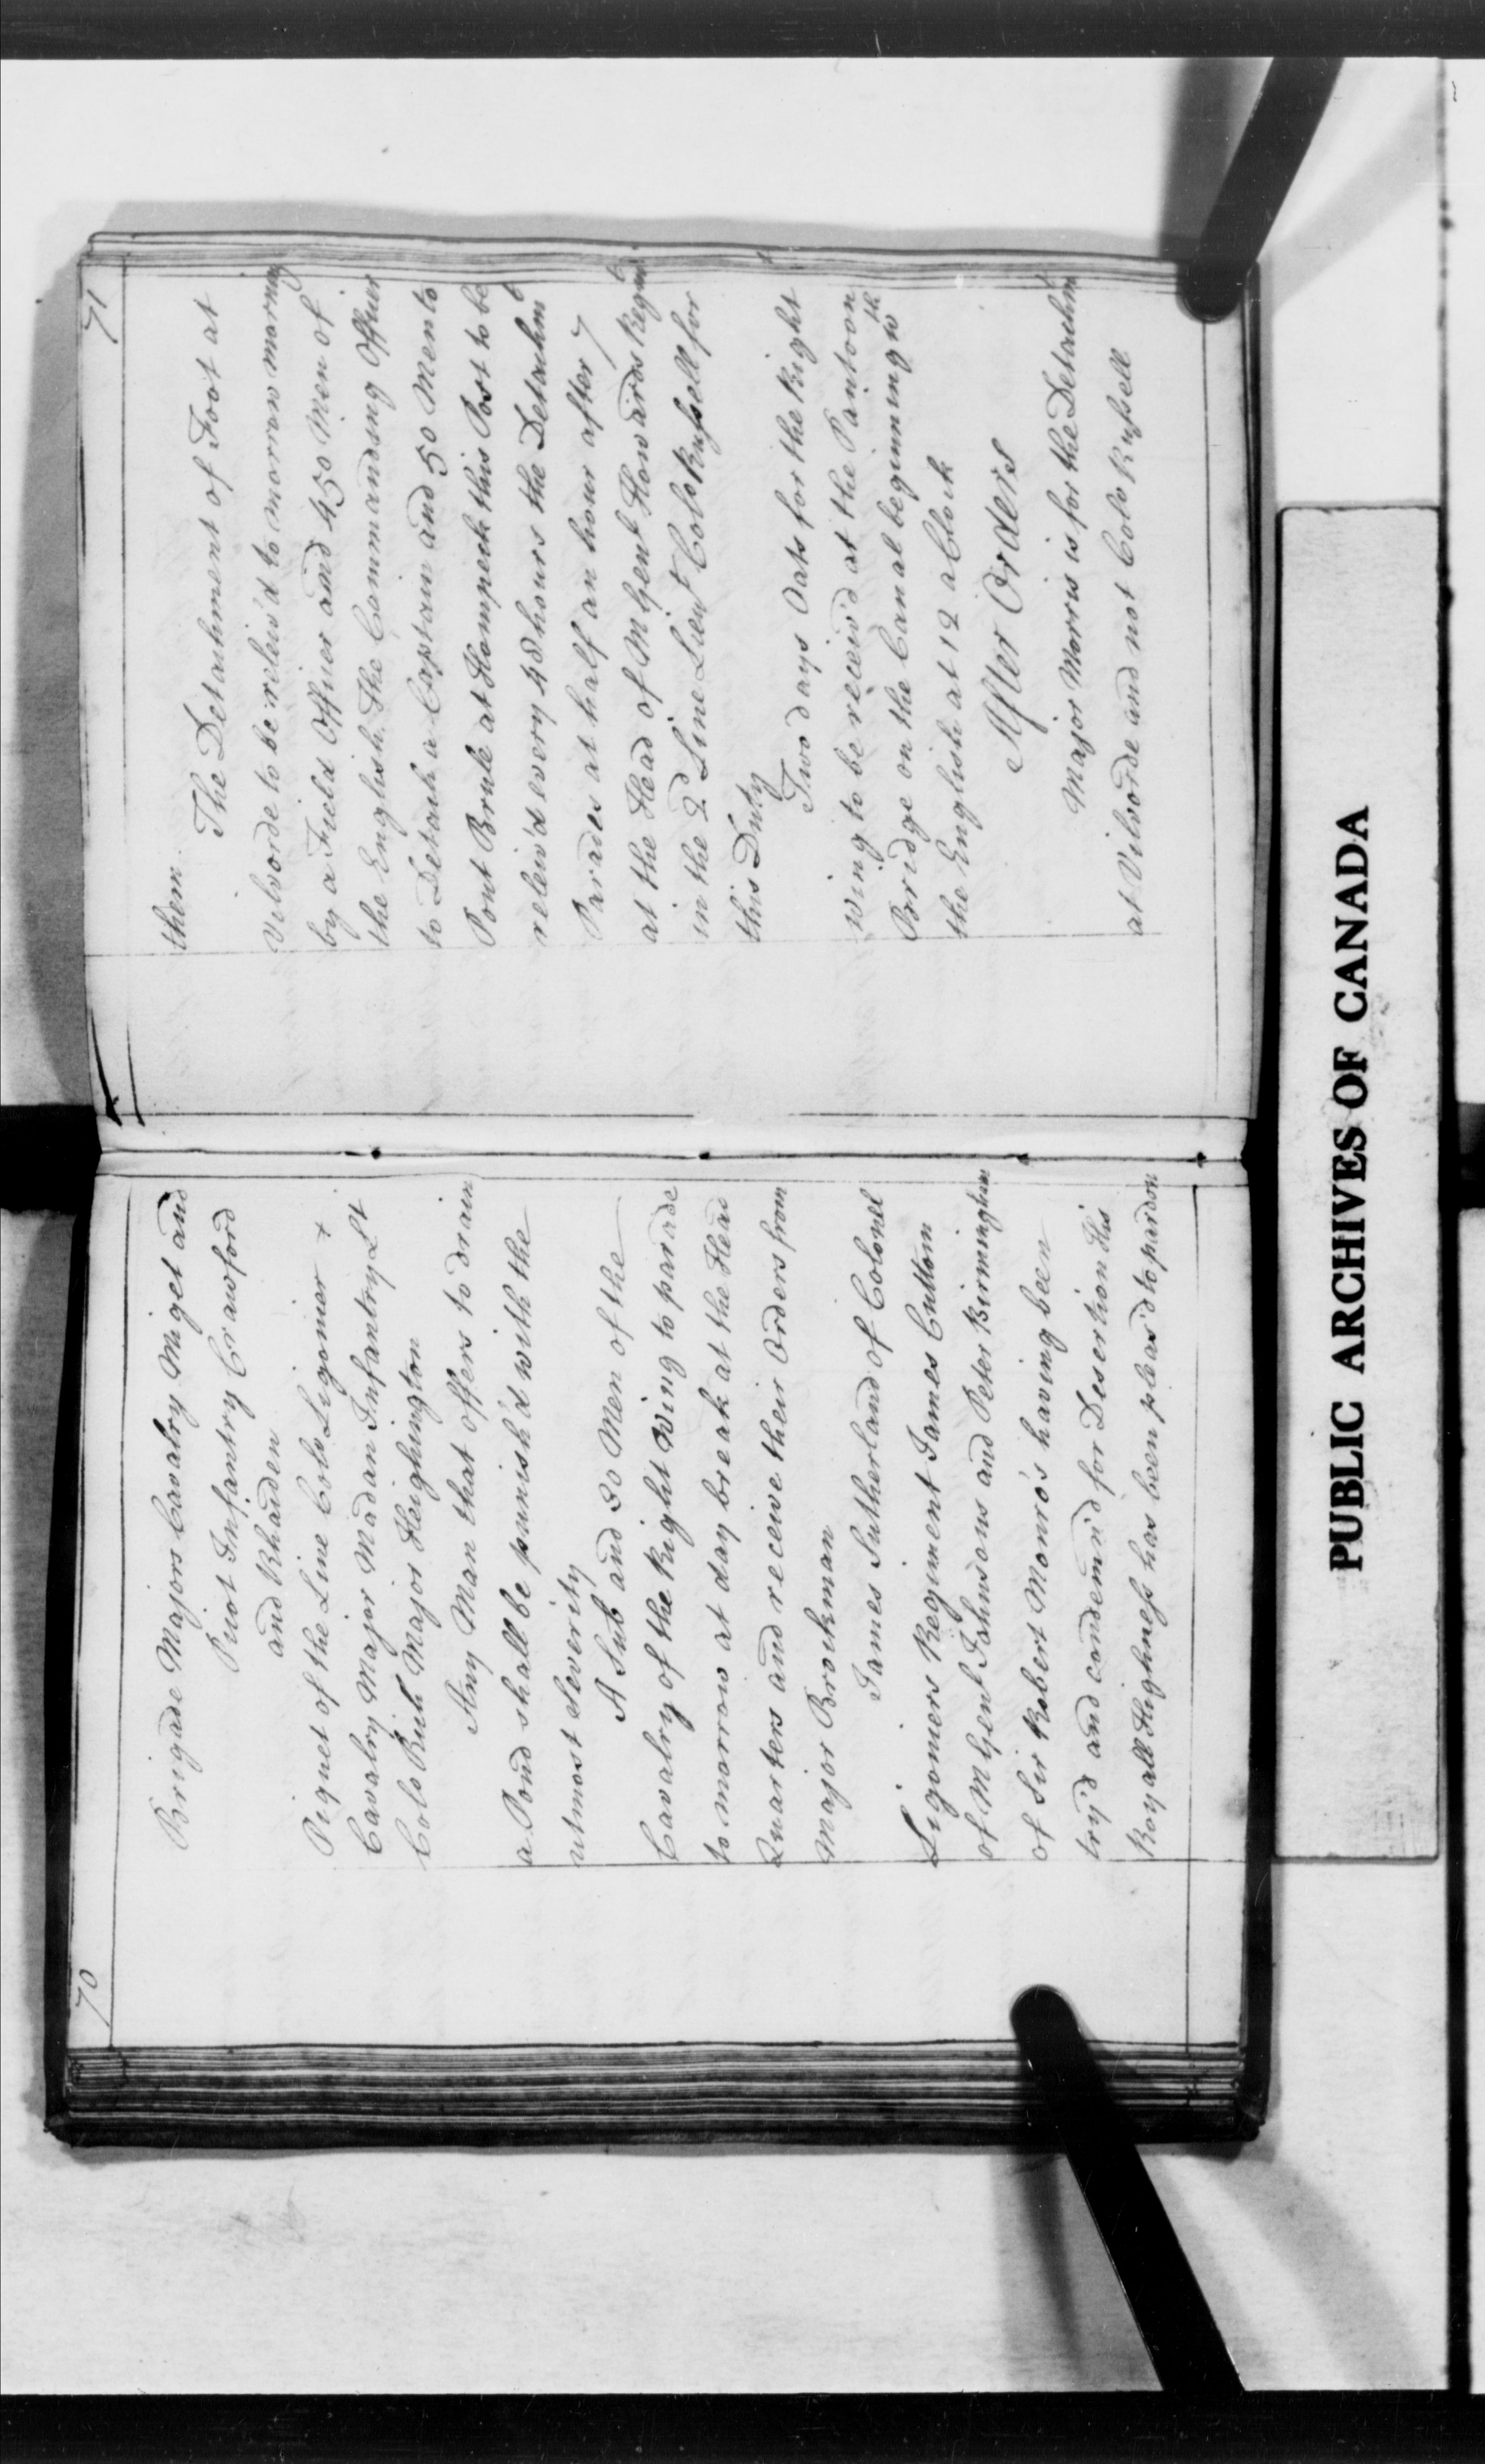 70
Brigade Majors Cavalry Miget and
Puot Infantry Crawford
and Rhaiden
Piquet of the Line Colo Ligonier +
Cavalry Major Madan Infantry Lt
Colo Rich Major Heighington
Any Man that offers to drain
a Pond shall be punish'd with the
utmost severity
A Sub and 30 Men of the
Cavalry of the Right Wing to parade
to morrow at day break at the Head
Quarters and receive their Orders from
Major Brockman
James Sutherland of Colonel
Ligoniers Regiment James Cuttom
of M Genl Johnsons and Peter Birmingham
of Sir Robert Monro's having been
try'd and condemn'd for Desertion His
Royall Highness has been pleas'd to pardon
71
them.
The Detachment of Foot at
Vilvorde to be reliev'd to morrow morning
by a Field Officer and 450 Men of
the English. The Commanding Officer
to Detach a Captain and 50 Men to
Pont Brule at Hompeck this Post to be
releiv'd every 48 hours the Detachmt
Parades at half an hour after 7
at the Head of M Genl Howards Regimt
in the 2d Line Lieut Colo Russell for
this Duty
Two days Oats for the Right
Wing to be receiv'd at the Pantoon
Bridge on the Canal beginning wth
the English at 12 a Clock
After Orders
Major Morris is for the Detachmt
at Vilvorde and not Colo Russell
PUBLIC ARCHIVES OF CANADA